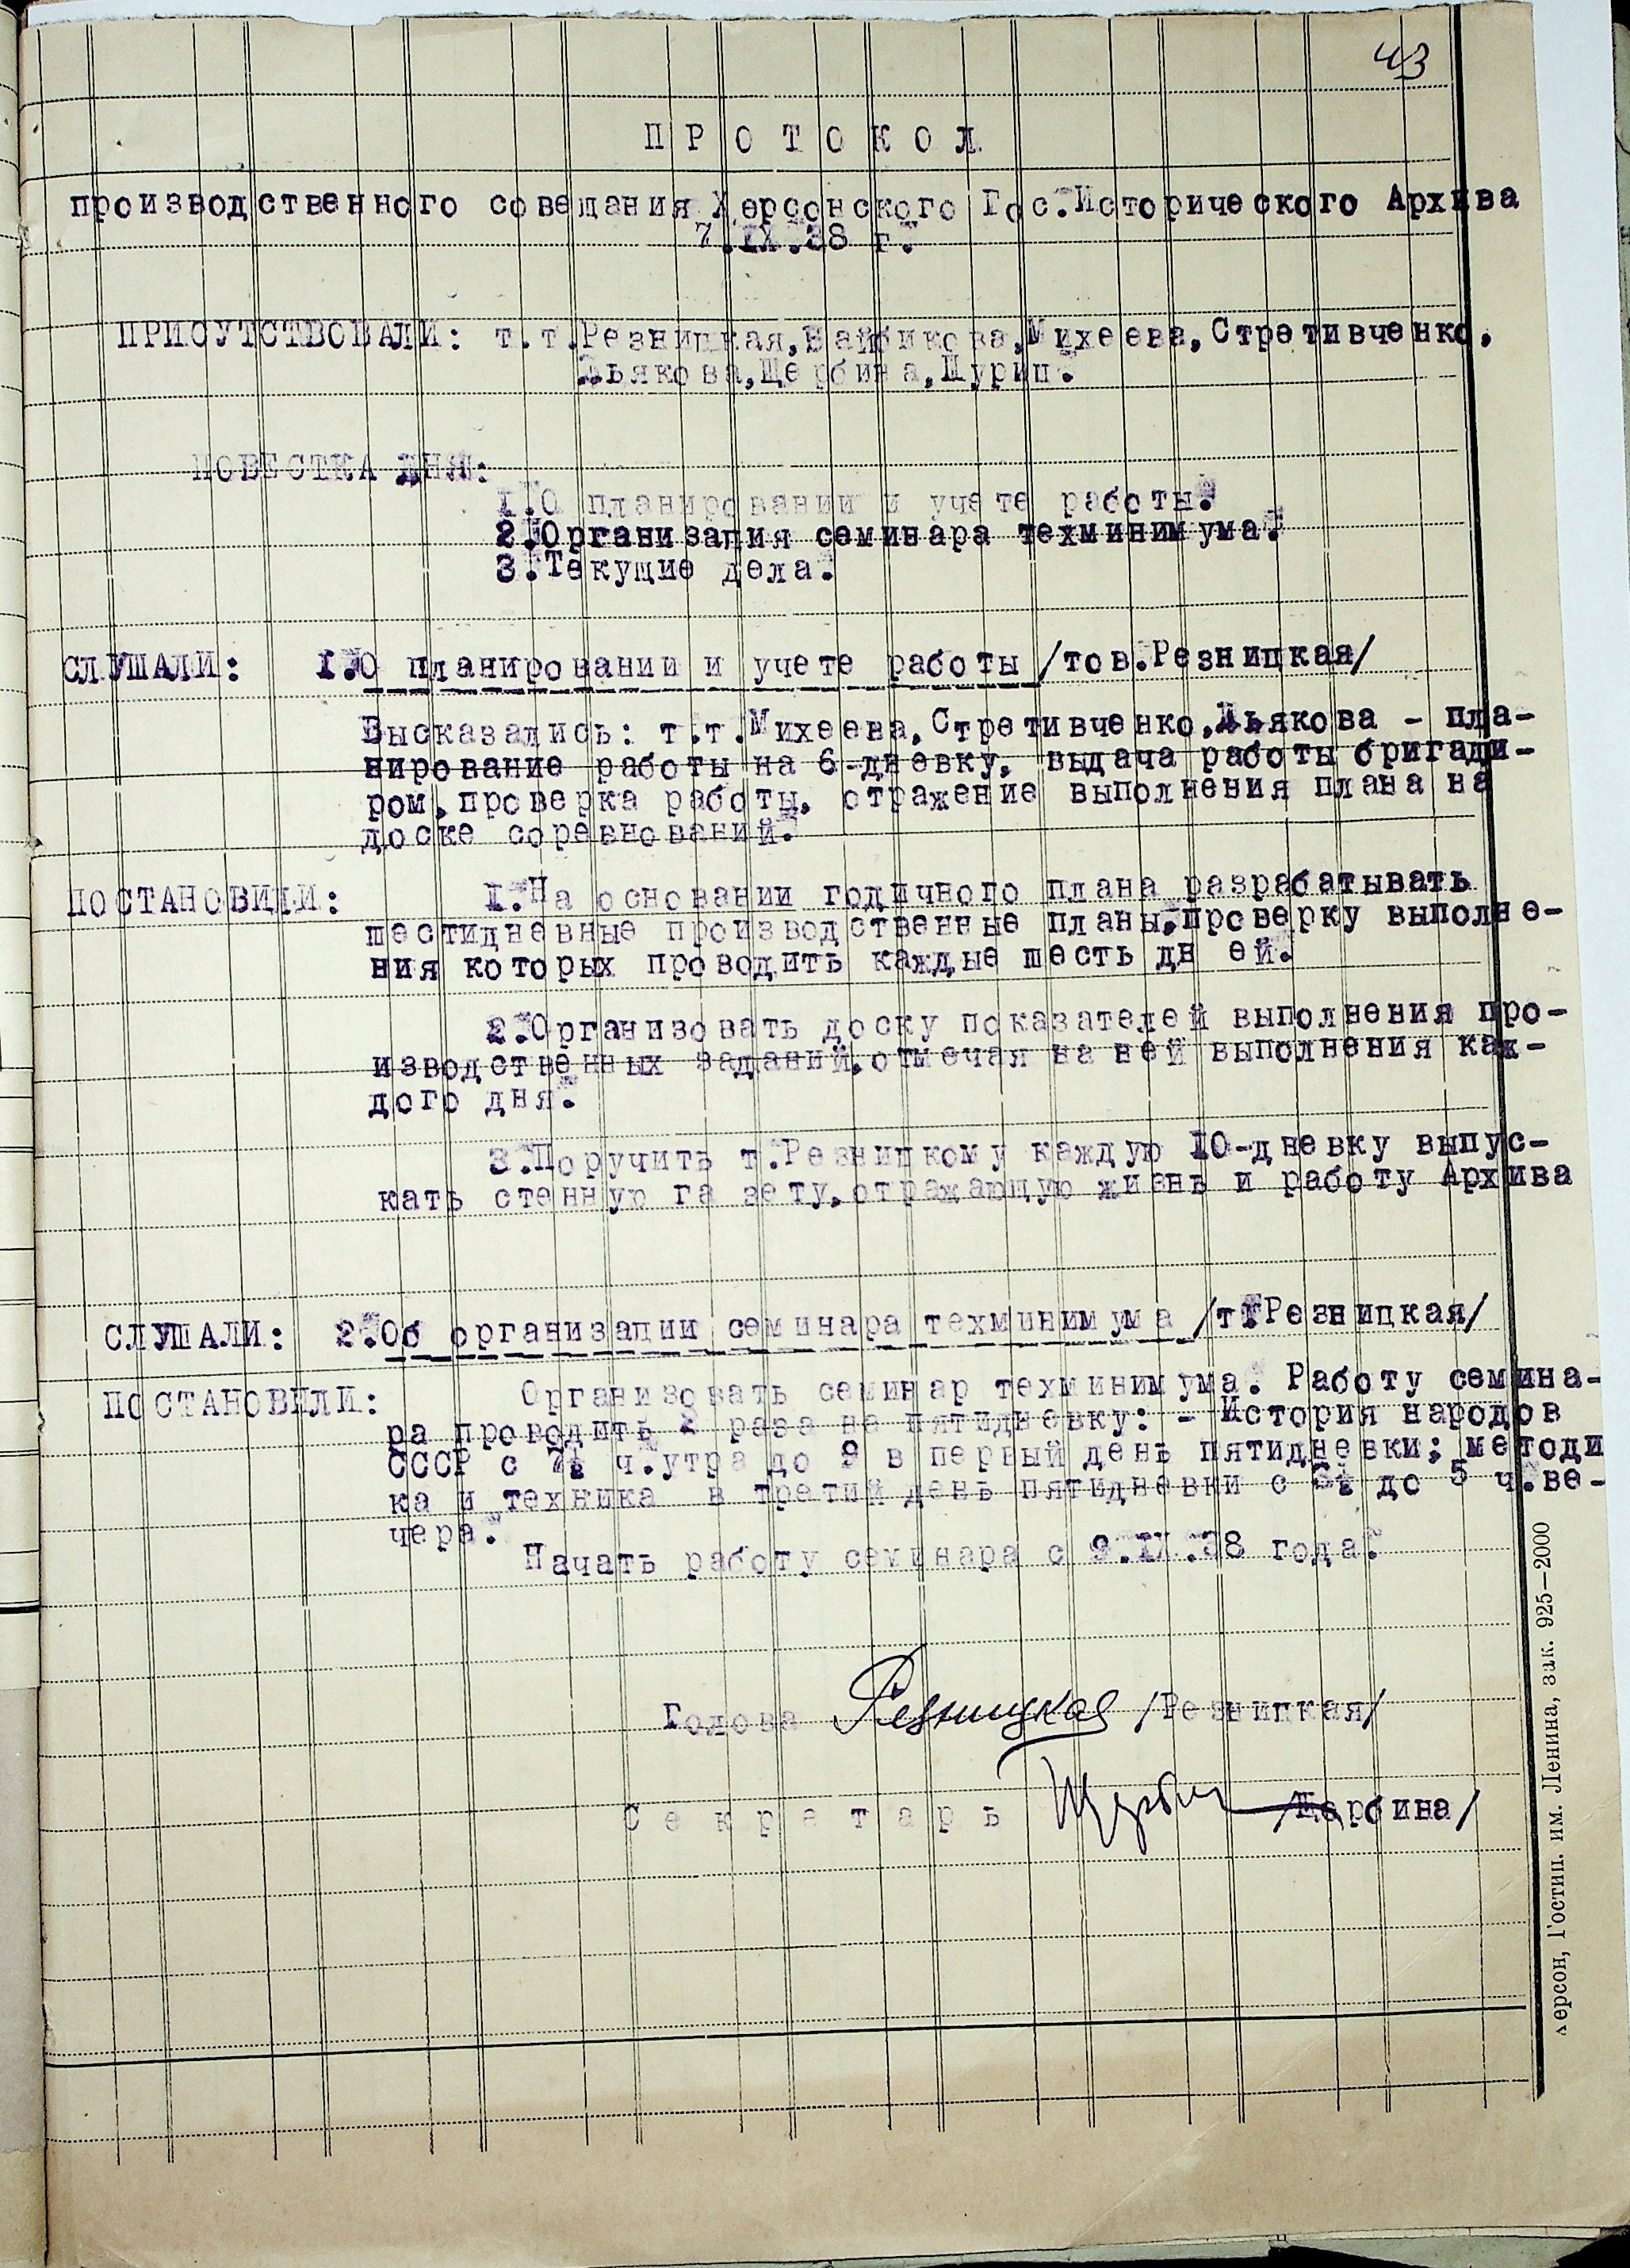 43
П Р О Т О К О Л
производственного совещания Херсонского Гос.Исторического Архива
7.IX.38 г.
ПРИСУТСТВОВАЛИ: т.т.Резницкая, Михеева, Стретивченко,
Дьякова, Щербина,
ПОВЕСТКА ДНЯ:
1.О планировании и учете работы.
2.Организация семинара техминимума.
3.Текущие дела.
СЛУШАЛИ: 1.О планировании и учете работы /тов.Резницкая/
Высказались: т.т.Михеева, Стретивченко, Дьякова - пла-
нирование работы на 6-дневку, выдача работы бригади-
ром, проверка работы, отражение выполнения плана на
доске соревнований.
ПОСТАНОВИЛИ: 1.На основании годичного плана разрабатывать
шестидневные производственные планы, проверку выполне-
ния которых проводить каждые шесть дн ей.
2.Организовать доску показателей выполнения про-
изводственных заданий, отмечая на ней выполнения каж-
дого дня.
3.Поручить т.Резницкому каждую 10-дневку выпус-
кать стенную га зету, отражающую жизнь и работу Архива
СЛУШАЛИ: 2.Об организации семинара техминимума /т.Резницкая/
ПОСТАНОВИЛИ: Организовать семинар техминимума. Работу семина-
ра проводить 2 раза на пятидневку: - История народов
СССР с 7½ ч.утра до 9 в первый день пятидневки; методи
ка и техника в третий день пятидневки с 3½ до 5 ч.ве-
чера.
Начать работу семинара с 9.IX.38 года.
Голова Резницкая /Резницкая/
С е к р е т а р ь Щерби /Щербина/
ерсон, Гостип. им. Ленина, зак. 925—2000